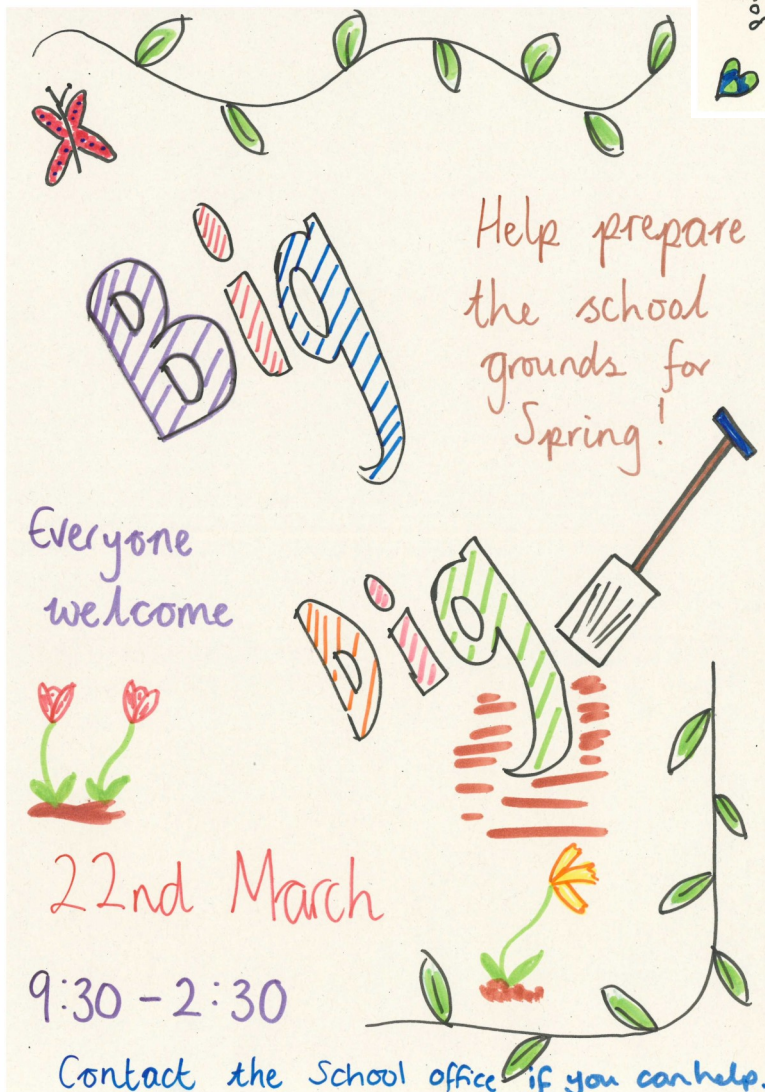 Big
Help prepare
the school
grounds for
Spring!
Everyone
welcome
Dig
22nd March
9:30-2:30
Contact the School office if you can help.